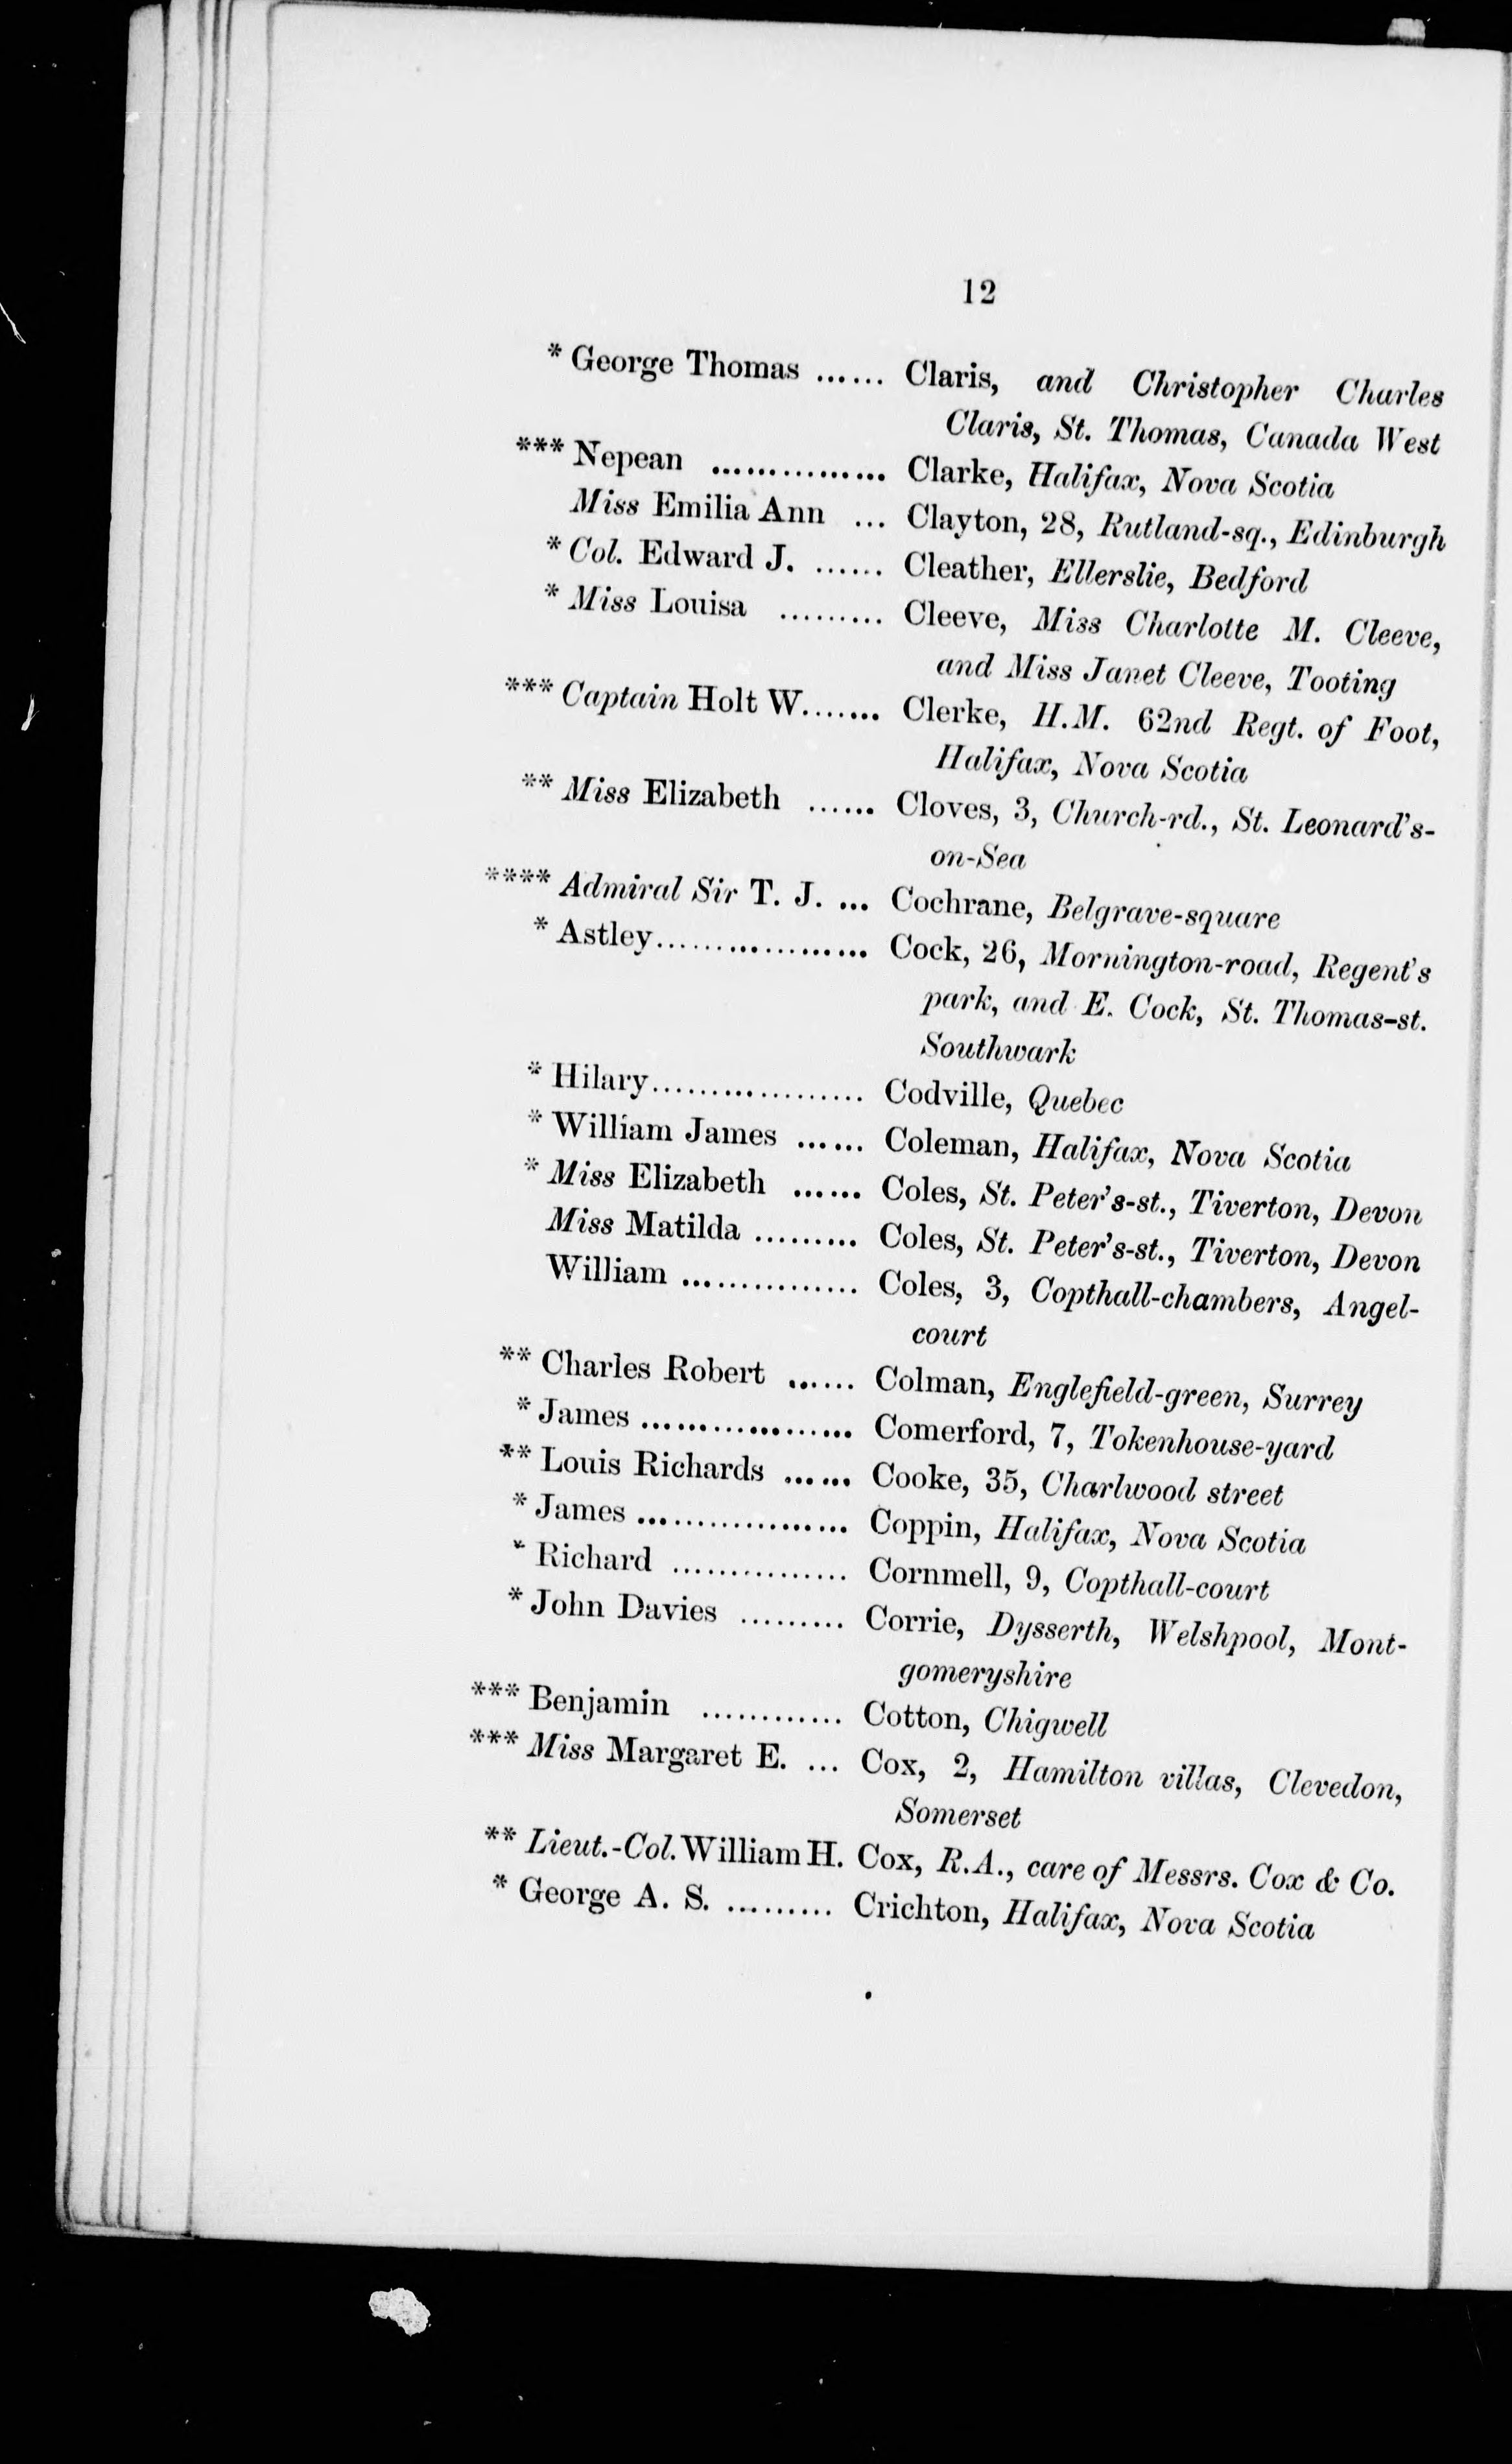 12
* George Thomas ...... Claris, and Christopher Charles
Claris, St. Thomas, Canada West
*** Nepean ............... Clarke, Halifax, Nova Scotia
Miss Emilia Ann ... Clayton, 28, Rutland-sq., Edinburgh
* Col. Edward J. ...... Cleather, Ellerslie, Bedford
* Miss Louisa ......... Cleeve, Miss Charlotte M. Cleeve,
and Miss Janet Cleeve, Tooting
*** Captain Holt W....... Clerke, H.M. 62nd Regt. of Foot,
Halifax, Nova Scotia
** Miss Elizabeth ...... Cloves, 3, Church-rd., St. Leonard's-
on-Sea
**** Admiral Sir T. J. ... Cochrane, Belgrave-square
* Astley.................. Cock, 26, Mornington-road, Regent's
park, and E. Cock, St. Thomas-st.
Southwark
* Hilary.................. Codville, Quebec
* William James ...... Coleman, Halifax, Nova Scotia
* Miss Elizabeth ...... Coles, St. Peter's-st., Tiverton, Devon
Miss Matilda ......... Coles, St. Peter's-st., Tiverton, Devon
William ............... Coles, 3, Copthall-chambers, Angel-
court
** Charles Robert ...... Colman, Englefield-green, Surrey
* James .................. Comerford, 7, Tokenhouse-yard
** Louis Richards ...... Cooke, 35, Charlwood street
* James .................. Coppin, Halifax, Nova Scotia
* Richard ............... Cornmell, 9, Copthall-court
* John Davies ......... Corrie, Dysserth, Welshpool, Mont-
gomeryshire
*** Benjamin ............ Cotton, Chigwell
*** Miss Margaret E. ... Cox, 2, Hamilton villas, Clevedon,
Somerset
** Lieut.-Col. William H. Cox, R.A., care of Messrs. Cox & Co.
* George A. S. ......... Crichton, Halifax, Nova Scotia